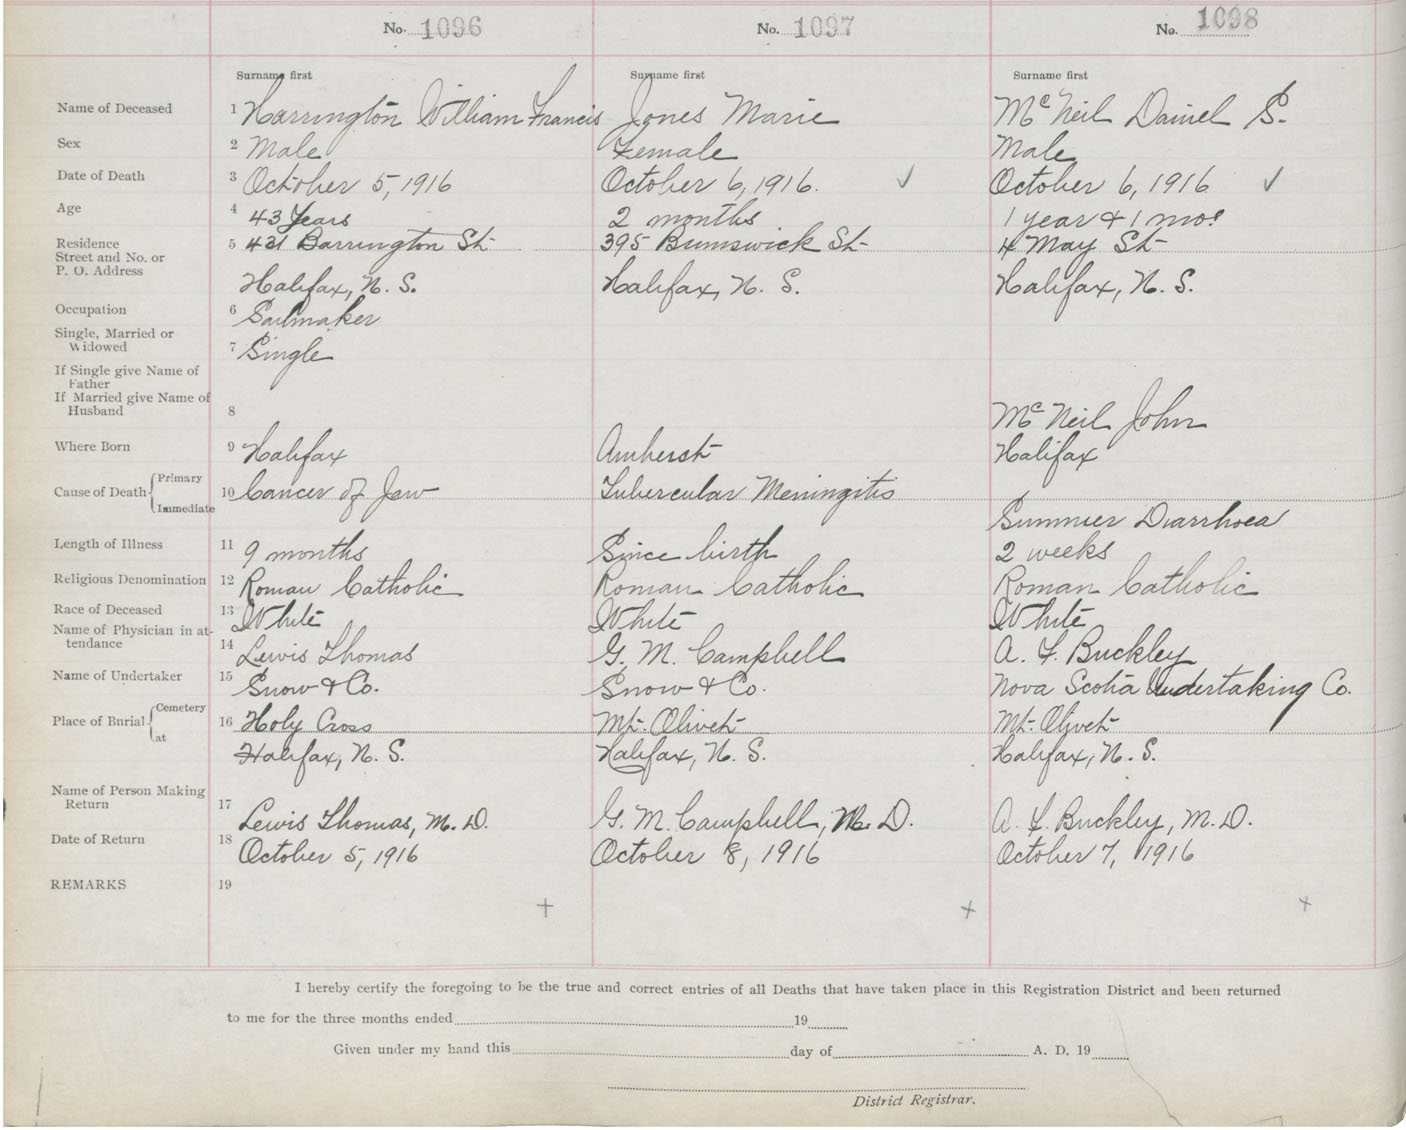 No. 1096 No. 1097 No. 1098
Surname first Surname first Surname first
Name of Deceased 1 Harrington William Francis Jones Marie McNeil Daniel S.
Sex 2 Male Female Male
Date of Death 3 October 5, 1916 October 6, 1916. ✓ October 6, 1916 ✓
Age 4 43 Years 2 months 1 year & 1 mos.
Residence 5 421 Barrington St. 395 Brunswick St. 4 May St.
Street and No. or
P. O. Address Halifax, N. S. Halifax, N. S. Halifax, N. S.
Occupation 6 Sailmaker
Single, Married or
Widowed 7 Single
If Single give Name of
Father
If Married give Name of
Husband 8 McNeil John
Where Born 9 Halifax Amherst Halifax
Cause of Death { Primary
10 Cancer of Jaw Tubercular Meningitis
Immediate Summer Diarrhoea
Length of Illness 11 9 months Since birth 2 weeks
Religious Denomination 12 Roman Catholic Roman Catholic Roman Catholic
Race of Deceased 13 White White White
Name of Physician in at-
tendance 14 Lewis Thomas G. M. Campbell A. F. Buckley
Name of Undertaker 15 Snow & Co. Snow & Co. Nova Scotia Undertaking Co.
Place of Burial { Cemetery 16 Holy Cross Mt. Olivet Mt. Olivet
at Halifax, N. S. Halifax, N. S. Halifax, N. S.
Name of Person Making
Return 17 Lewis Thomas, M. D. G. M. Campbell, M. D. A. F. Buckley, M. D.
Date of Return 18 October 5, 1916 October 8, 1916 October 7, 1916
REMARKS 19
+ + +
I hereby certify the foregoing to be the true and correct entries of all Deaths that have taken place in this Registration District and been returned
to me for the three months ended 19
Given under my hand this day of A. D. 19
District Registrar.